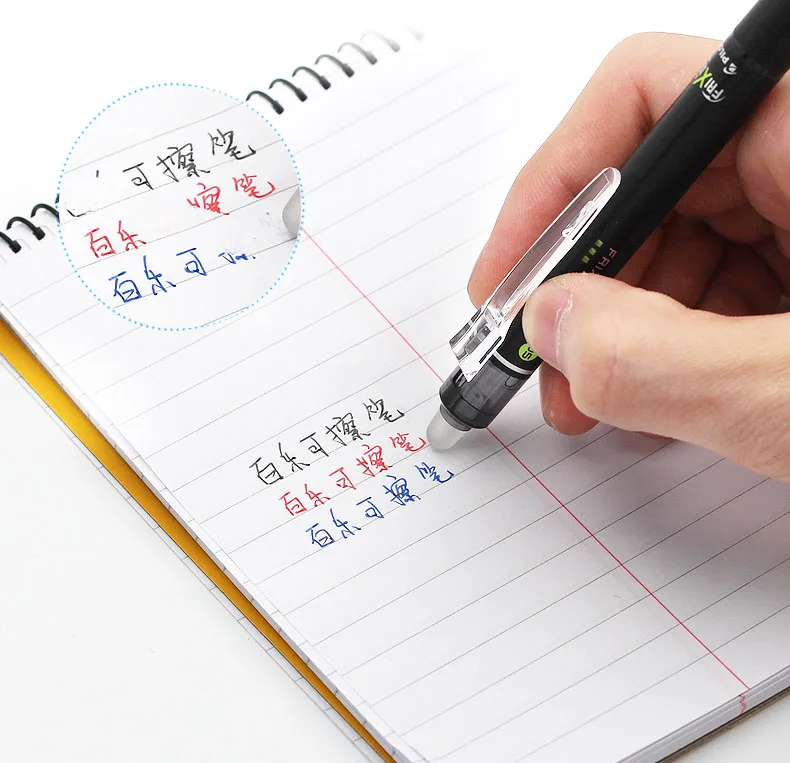 可擦笔
百乐 擦笔
百乐可
百乐可擦笔
百乐可擦笔
百乐可擦笔
FRIX
PILO
FRI
05